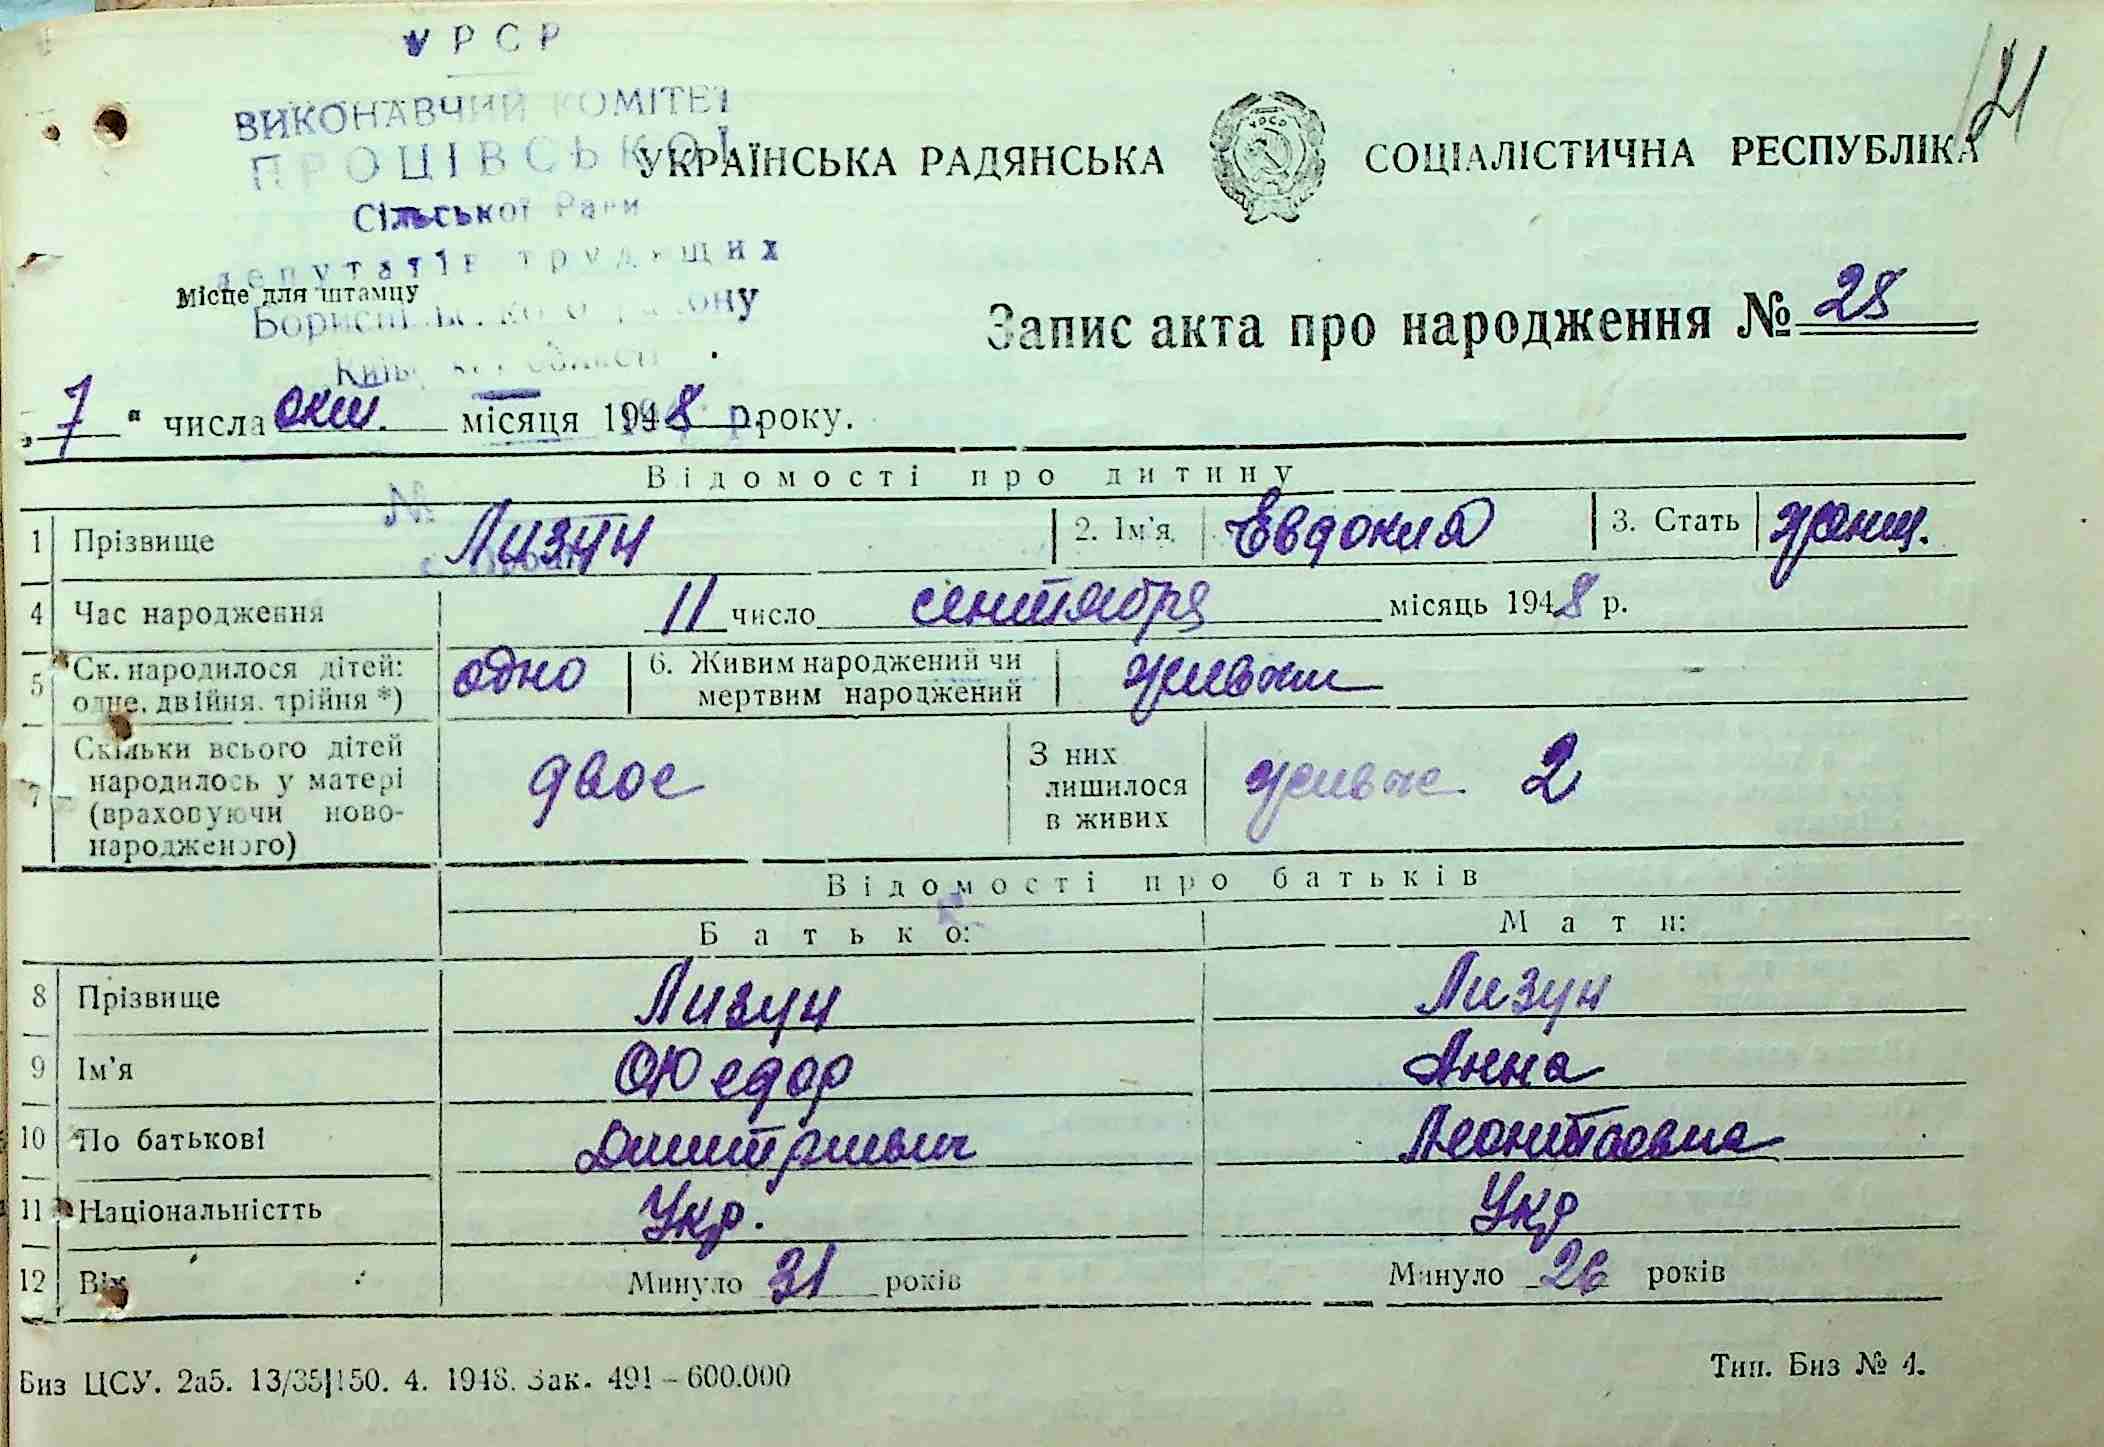 УРСР
ВИКОНАВЧИЙ КОМІТЕТ
ПРОЦІВСЬКОЇ
Сільської Ради
депутатів трудящих
Бориспільського району
Київської області
21
УКРАЇНСЬКА РАДЯНСЬКА СОЦІАЛІСТИЧНА РЕСПУБЛІКА
Місце для штампу
Запис акта про народження № 28
„ 7 " числа окт. місяця 1948 р. року.
№
Відомості про дитину
1 Прізвище Лизун 2. Ім'я Евдокия 3. Стать женщ.
4 Час народження 11 число сентября місяць 1948 р.
5 Ск. народилося дітей: одне, двійня, трійня *) одно 6. Живим народжений чи мертвим народжений живым
7 Скільки всього дітей народилось у матері (враховуючи новонародженого) двое З них лишилося в живих живые 2
Відомості про батьків
Батько: Мати:
8 Прізвище Лизун Лизун
9 Ім'я Фёдор Анна
10 По батькові Дмитриевич Леонтьевна
11 Національністть Укр. Укр
12 Вік Минуло 31 років Минуло 26 років
Биз ЦСУ. 2аб. 13/35|150. 4. 1948. Зак. 491 – 600.000 Тип. Биз № 1.